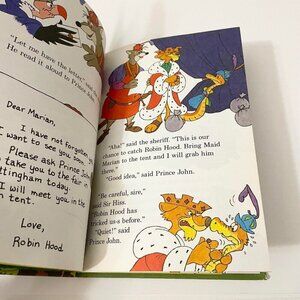 "Let me have the letter," said
He read it aloud to Prince
John.
Dear Marian,
I have not forgotten
want to see you soon.
Please ask Prince J
take you to the fair in
ttingham today.
I will meet you in the
tent.
Love,
Robin Hood
"Aha!" said the sheriff. "This is our
chance to catch Robin Hood. Bring Maid
Marian to the tent and I will grab him
there."
"Good idea," said Prince John.
"Be careful, sire,"
said Sir Hiss.
"Robin Hood has
tricked us-s before."
"Quiet!" said
Prince John.